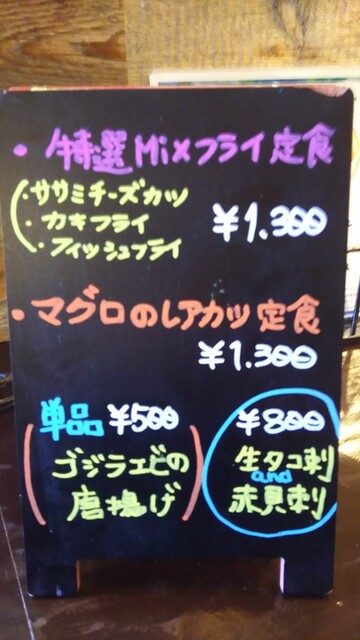 ・特選Mixフライ定食
・ササミチーズカツ
・カキフライ
・フィッシュフライ
¥1.300
・マグロのレアカツ定食
¥1.300
単品 ¥500
ゴジラエビの
唐揚げ
¥800
生タコ刺
and
赤貝刺